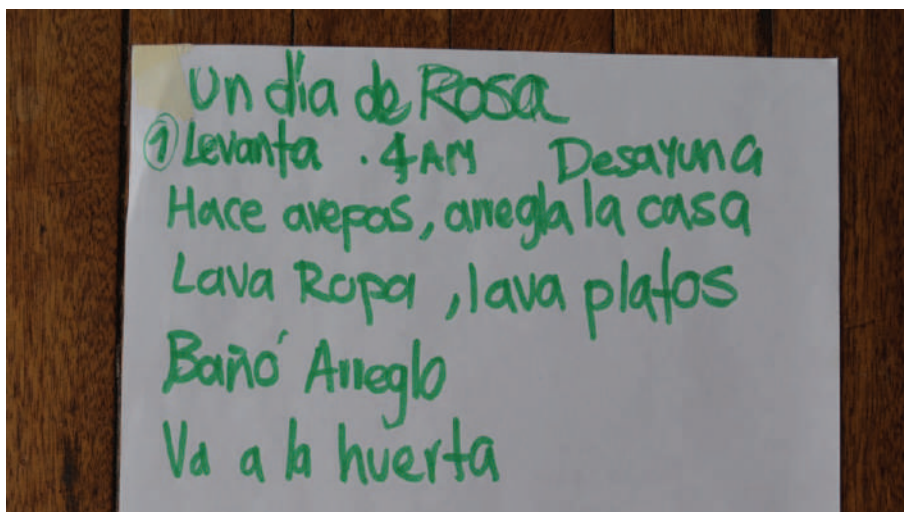 Un día de Rosa
① Levanta . 4 AM Desayuna
Hace arepas, arregla la casa
Lava Ropa , lava platos
Bañó Arreglo
Va a la huerta